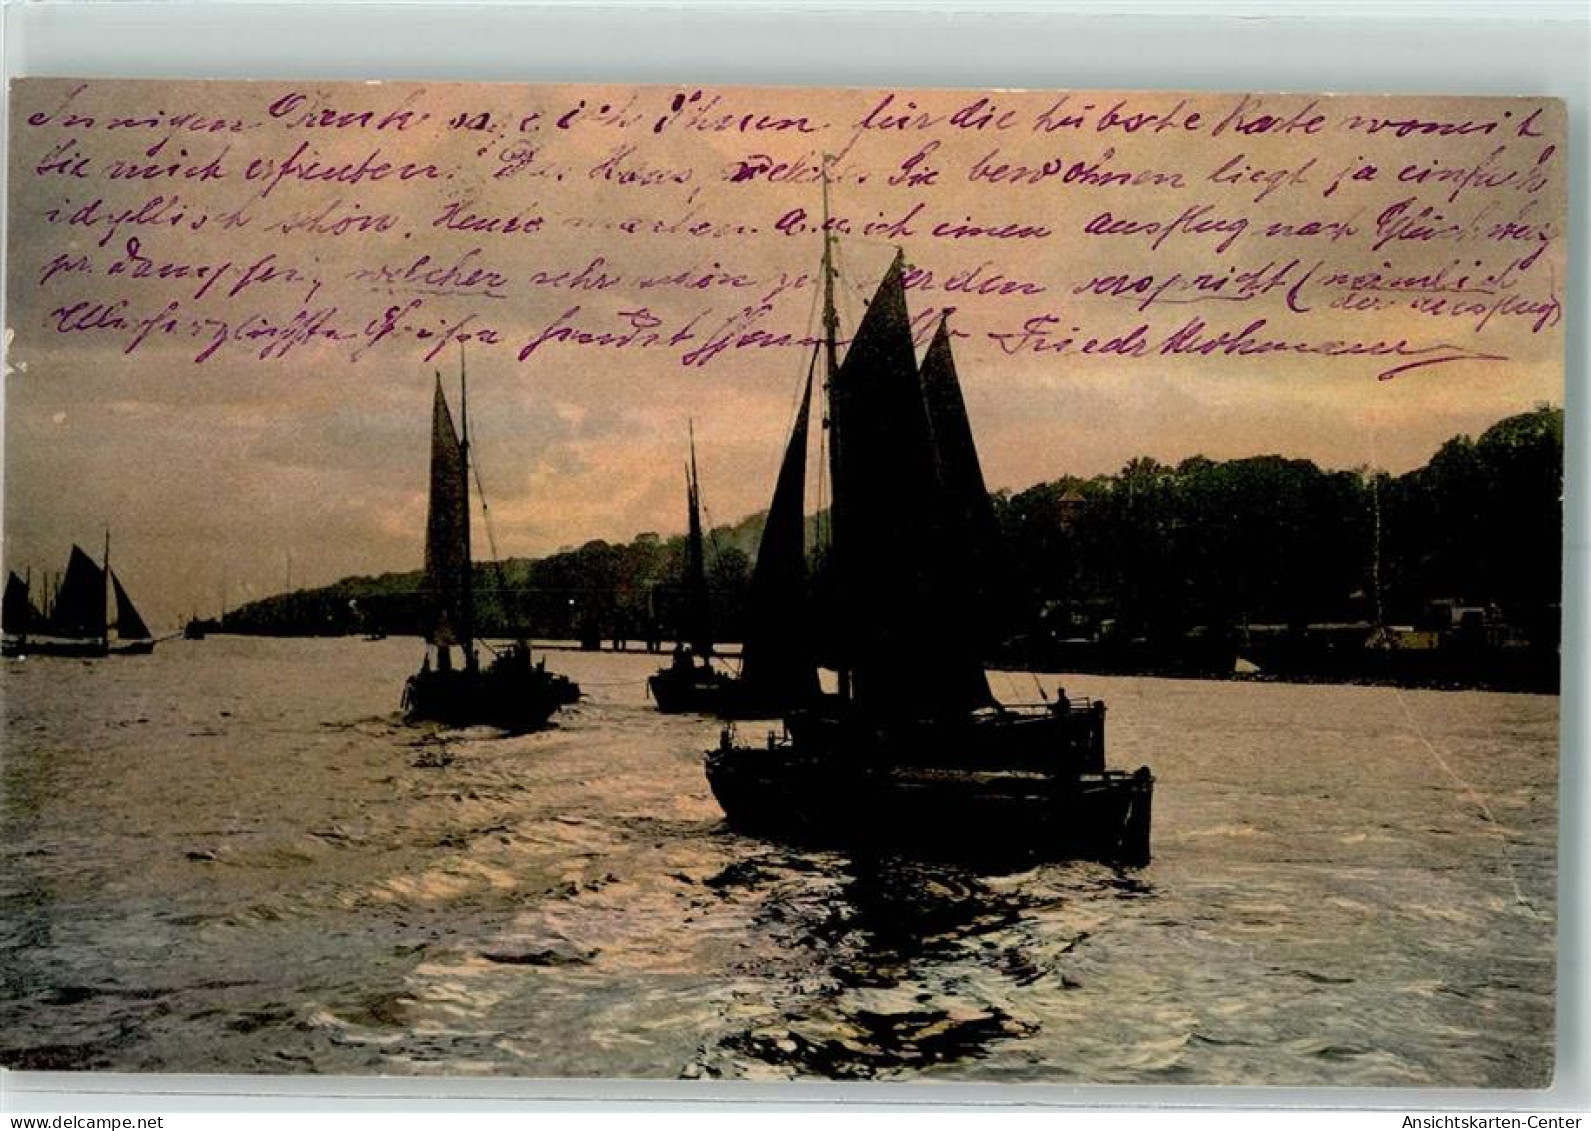 Innigen Dank sage ich Ihnen für die hübsche Karte womit
Sie mich erfreuten. Das Haus, welches Sie bewohnen liegt ja einfach
idyllisch schön. Heute machen auch ich einen Ausflug nach
pr. Dampfer, welcher sehr schön zu werden verspricht (nämlich
der Ausflug)
Grüße sendet Ihnen Friedr.
oldthing
Ansichtskarten-Center